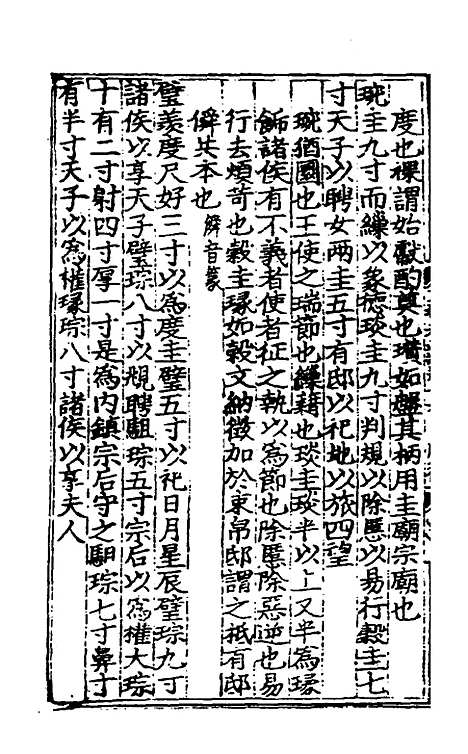 度也祼謂始獻酌奠也瓚如盤其柄用圭廟宗廟也
琬圭九寸而繅以象德琰圭九寸判規以除慝以易行糓圭七
寸天子以聘女兩圭五寸有邸以祀地以旅四望
琬猶圜也王使之瑞節也繅藉也琰圭琰半以上又半為瑑
飾諸侯有不義者使者征之執以為節也除慝除惡逆也易
行去煩苛也糓圭瑑如糓文納徵加於束帛邸謂之抵有邸
僢共本也 僢音篆
璧羨度尺好三寸以為度圭璧五寸以祀日月星辰璧琮九寸
諸侯以享天子璧琮八寸以覜聘駔琮五寸宗后以為權大琮
十有二寸射四寸厚一寸是為内鎮宗后守之駔琮七寸鼻寸
有半寸天子以為權瑑琮八寸諸侯以享夫人